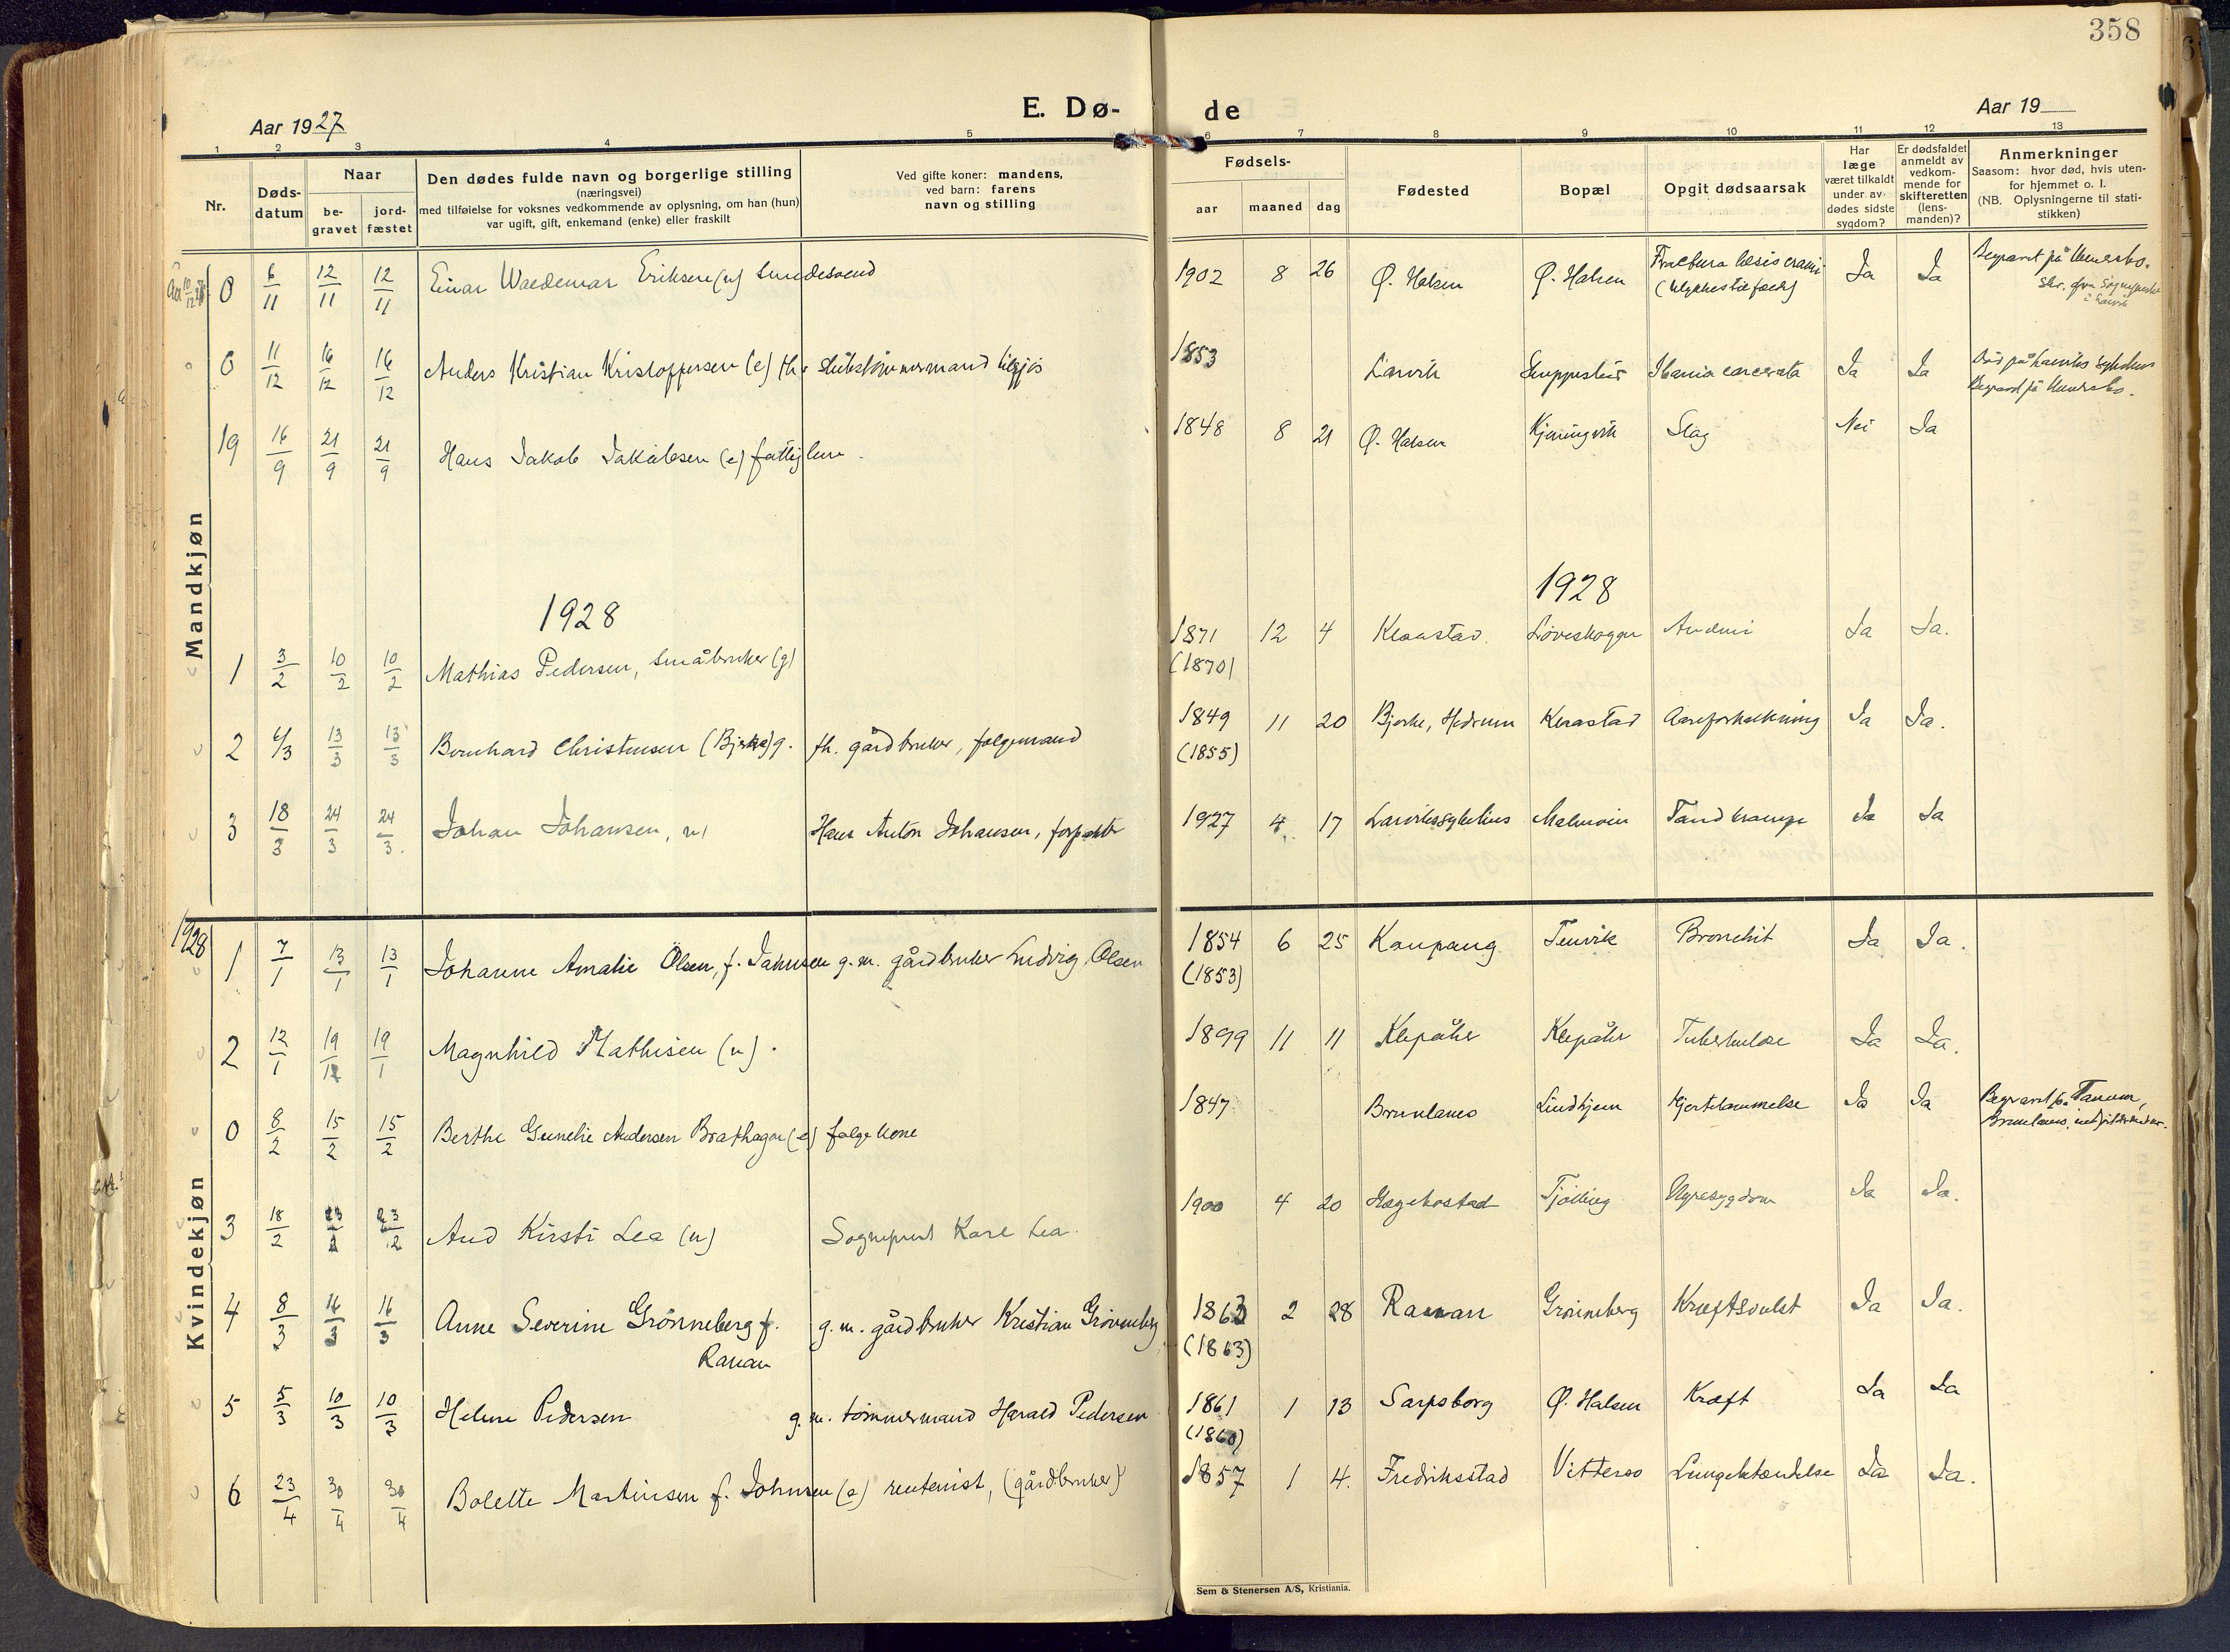 358
E. Dø- de
Aar 1927
Aar 19
1 2 3 4 5 6 7 8 9 10 11 12 13
Nr.
Døds-
datum
Naar
be-
gravet
jord-
fæstet
Den dødes fulde navn og borgerlige stilling
(næringsvei)
med tilføielse for voksnes vedkommende av oplysning, om han (hun)
var ugift, gift, enkemand (enke) eller fraskilt
Ved gifte koner: mandens,
ved barn: farens
navn og stilling
Fødsels-
aar maaned dag
Fødested
Bopæl
Opgit dødsaarsak
Har
læge
været tilkaldt
under av-
dødes sidste
sygdom?
Er dødsfaldet
anmeldt av
vedkom-
mende for
skifteretten
(lens-
manden)?
Anmerkninger
Saasom: hvor død, hvis uten-
for hjemmet o. l.
(NB. Oplysningerne til stati-
stikken)
Mandkjøn
0 6/11 12/11 12/11 Einar Waldemar Eriksen (u) 1902 8 26 Ø. Halsen Ø. Halsen Ja Ja
0 11/12 16/12 16/12 Anders Kristian Kristoffersen (e) fh. skibstømmermand 1853 Larvik Ja Ja
19 16/9 21/9 21/9 Hans Jakob Jakobsen (e) fattiglem. 1848 8 21 Ø. Halsen Kjerringvik Slag Nei Ja
1928 1928
1 3/2 10/2 10/2 Mathias Pedersen, småbruker (g) 1871 12 4 Klaastad Løveskogen Ja Ja.
(1870)
2 6/3 13/3 13/3 Bernhard Christensen (Bjerke) g. fh. gårdbruker, følgemand 1849 11 20 Bjerke, Hedrum Klaastad Aareforkalkning Ja Ja.
(1855)
3 18/3 24/3 24/3. Johan Johansen, u) Hans Anton Johansen, forpakter 1927 4 17 Larvikssykehus Malmøien Tandkrampe Ja Ja
1928
Kvindekjøn
1 7/1 13/1 13/1 Johanne Amalie Olsen, f. Jakobsen g. m. gårdbruker Ludvig Olsen 1854 6 25 Kaupang Tenvik Bronchit Ja Ja.
(1853)
2 12/1 19/1 19/1 Magnhild Mathisen (u). 1899 11 11 Klepåker Klepåker Tuberkulose Ja Ja.
0 8/2 15/2 15/2 Berthe Gunelie Andersen Brathagen (e) følgekone 1847 Brunlanes Lindhjem Hjertelammelse Ja Ja Begravet på Tanum,
Brunlanes.
3 18/2 23/2 23/2 Aud Kirsti Lea (u) Sogneprest Kare Lea. 1900 4 20 Hægebostad Tjølling Nyresygdom Ja Ja.
4 8/3 16/3 16/3 Anne Severine Grønneberg f. g. m. gårdbruker Kristian Grønneberg 1863 2 28 Rauan Grønneberg Kræftsvulst Ja Ja.
Rauan (1863)
5 5/3 10/3 10/3 Helene Pedersen g. m. tømmermand Harald Pedersen 1861 1 13 Sarpsborg Ø. Halsen Kræft Ja Ja
(1860)
6 23/4 30/4 30/4 Bolette Martinsen f. Johnsen (e) rentenist, (gårdbruker) 1857 1 4. Fredriksstad Vittersø Lungebetændelse Ja Ja.
Sem & Stenersen A/S, Kristiania.